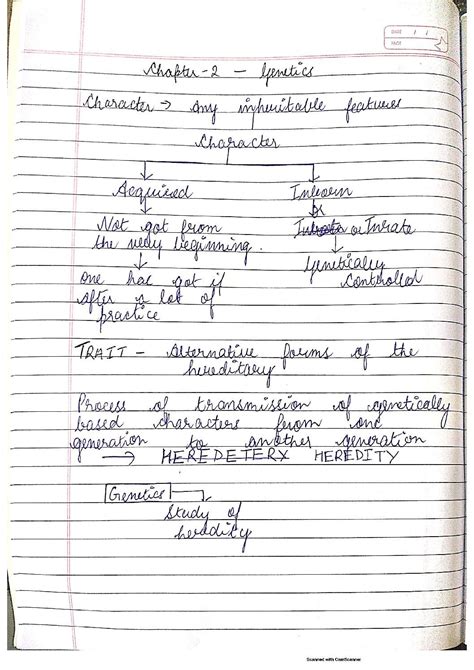 DATE / /
PAGE
Chapter-2 - Genetics
Character → Any inheritable features
Character
Acquired Inborn
or
Not got from Inrate
the very beginning. or Inrate
Genetically
Controlled
one has got it
after a lot of
practice
TRAIT - Alternative forms of the
hereditary
Process of transmission of genetically
based characters from one
generation to another generation
→ HEREDETERY HEREDITY
Genetics
Study of
heredity
Scanned with CamScanner